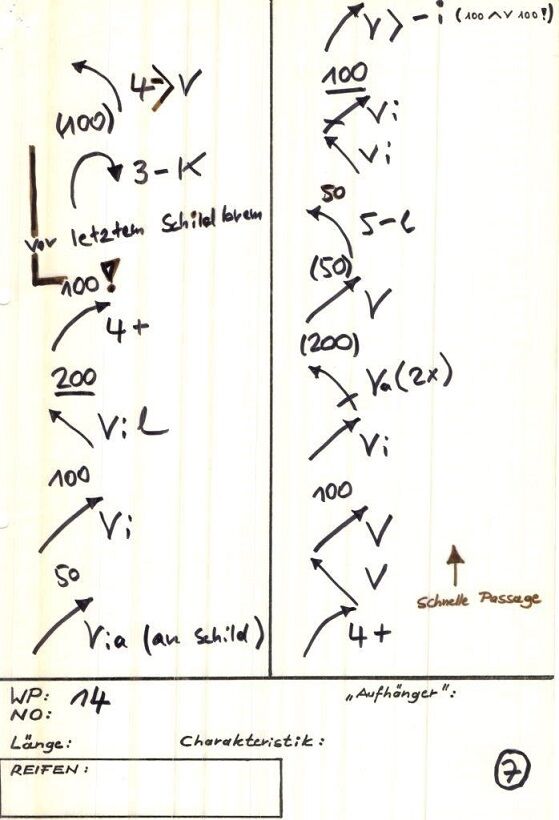 4->V
(100)
3-K
vor letztem Schild brem
100!
4+
200
Vi L
100
Vi
50
Via (an Schild)
V>-i (100 ^ V 100!)
100
Vi
Vi
50
5-L
(50)
V
(200)
Va (2x)
Vi
100
V
V
4+
Schnelle Passage
WP: 14
NO:
"Aufhänger":
Länge: Charakteristik:
REIFEN:
7